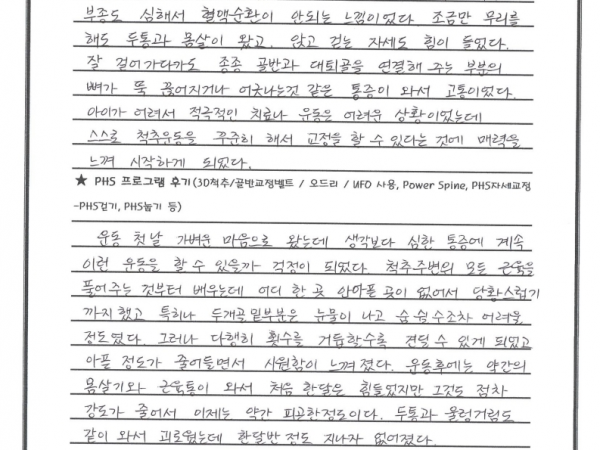 부종도 심해서 혈액순환이 안되는 느낌이었다. 조금만 무리를
해도 두통과 몸살이 왔고. 앉고 걷는 자세도 힘이 들었다.
잘 걸어가다가도 종종 골반과 대퇴골을 연결해 주는 부분의
뼈가 뚝 끊어지거나 어긋나는것 같은 통증이 와서 고통이었다.
아이가 어려서 적극적인 치료나 운동은 어려운 상황이었는데
스스로 척추운동을 꾸준히 해서 교정을 할 수 있다는 것에 매력을
느껴 시작하게 되었다.
★ PHS 프로그램 후기(3D척추/골반교정벨트 / 오드리 / UFO 사용, Power Spine, PHS자세교정
-PHS걷기, PHS눕기 등)
운동 첫날 가벼운 마음으로 왔는데 생각보다 심한 통증에 계속
이런 운동을 할 수 있을까 걱정이 되었다. 척추주변의 모든 근육을
풀어주는 것부터 배우는데 어디 한 곳 안아픈 곳이 없어서 당황스럽기
까지 했고 특히나 두개골 밑부분은 눈물이 나고 숨쉴수조차 어려울
정도였다. 그러나 다행히 횟수를 거듭할수록 견딜 수 있게 되었고
아픈 정도가 줄어들면서 시원함이 느껴졌다. 운동후에는 약간의
몸살기와 근육통이 와서 처음 한달은 힘들었지만 그것도 점차
강도가 줄어서 이제는 약간 피곤한정도이다. 두통과 울렁거림도
같이 와서 괴로웠는데 한달반 정도 지나자 없어졌다.